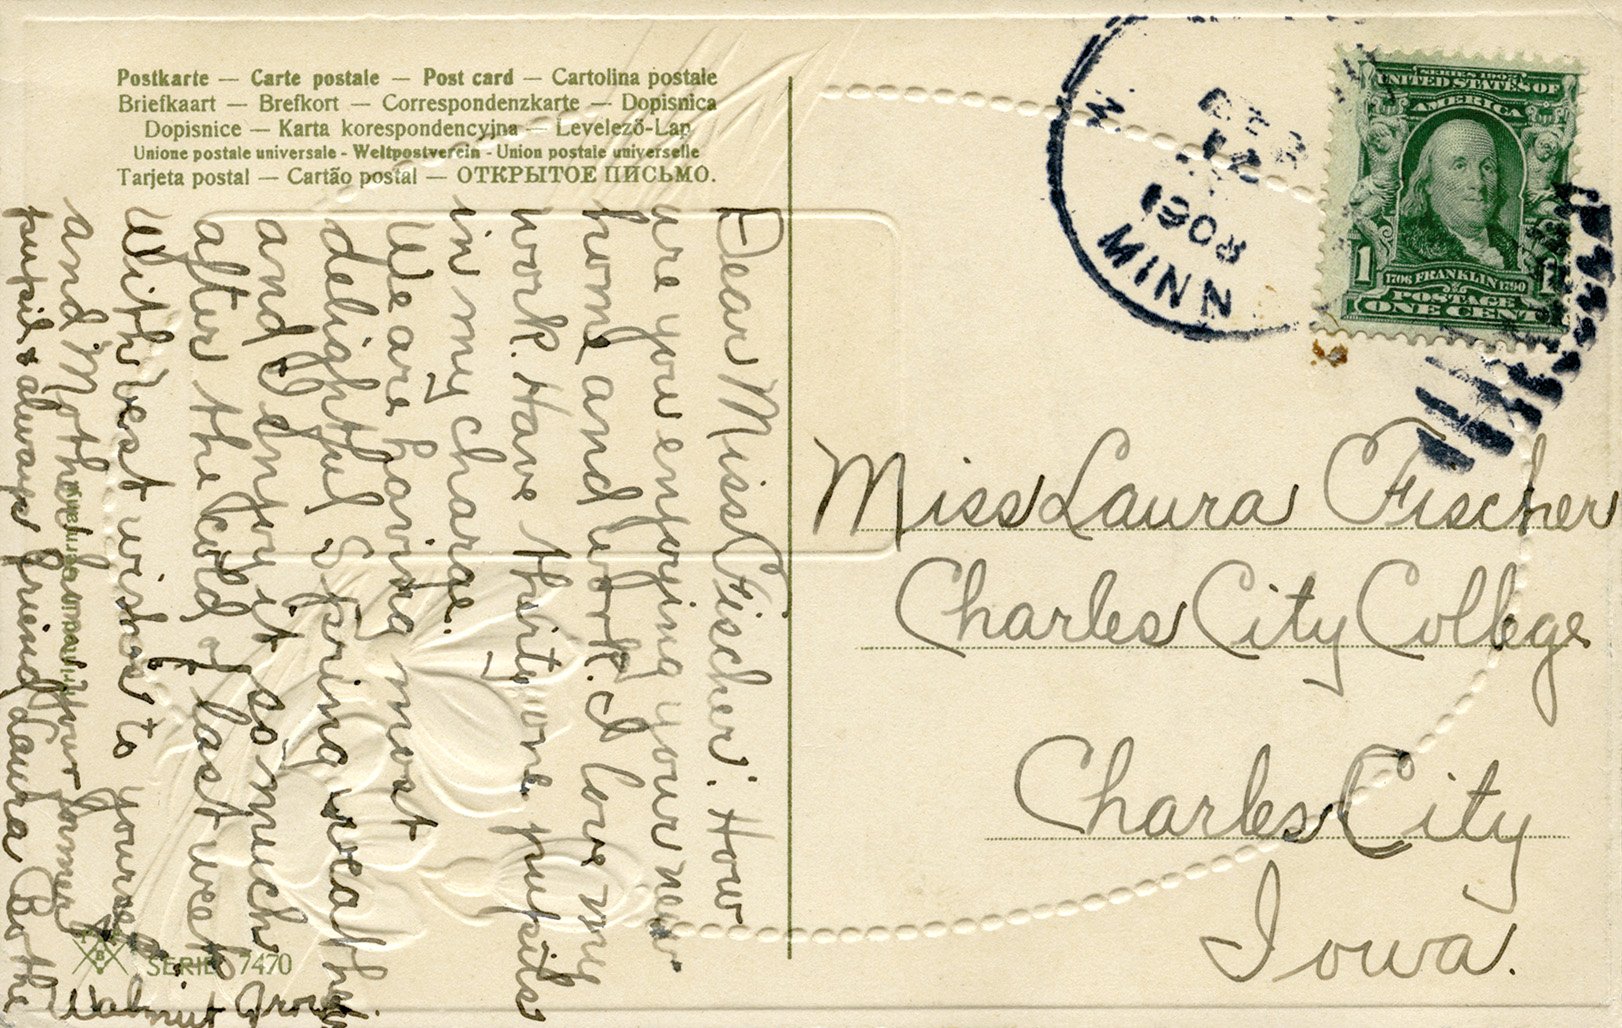 Postkarte — Carte postale — Post card — Cartolina postale
Briefkaart — Brefkort — Correspondenzkarte — Dopisnica
Dopisnice — Karta korespondencyjna — Levelező-Lap
Unione postale universale - Weltpostverein - Union postale universelle
Tarjeta postal — Cartão postal — ОТКРЫТОЕ ПИСЬМО.
Dear Miss Fischer: How
are you enjoying your new
home and work. I love my
work. Have thirty one pupils
in my charge.
We are having most
delightful Spring weather
and I enjoy it so much
after the cold of last week
With best wishes to yourself
and Mother. Your former
pupil & always friend Laura Bothe
Walnut Grove
SERIE 7470
MINN
1908
SERIES 1902
UNITED STATES OF
AMERICA
1706 FRANKLIN 1790
POSTAGE
1 ONE CENT
Miss Laura Fischer
Charles City College
Charles City
Iowa.